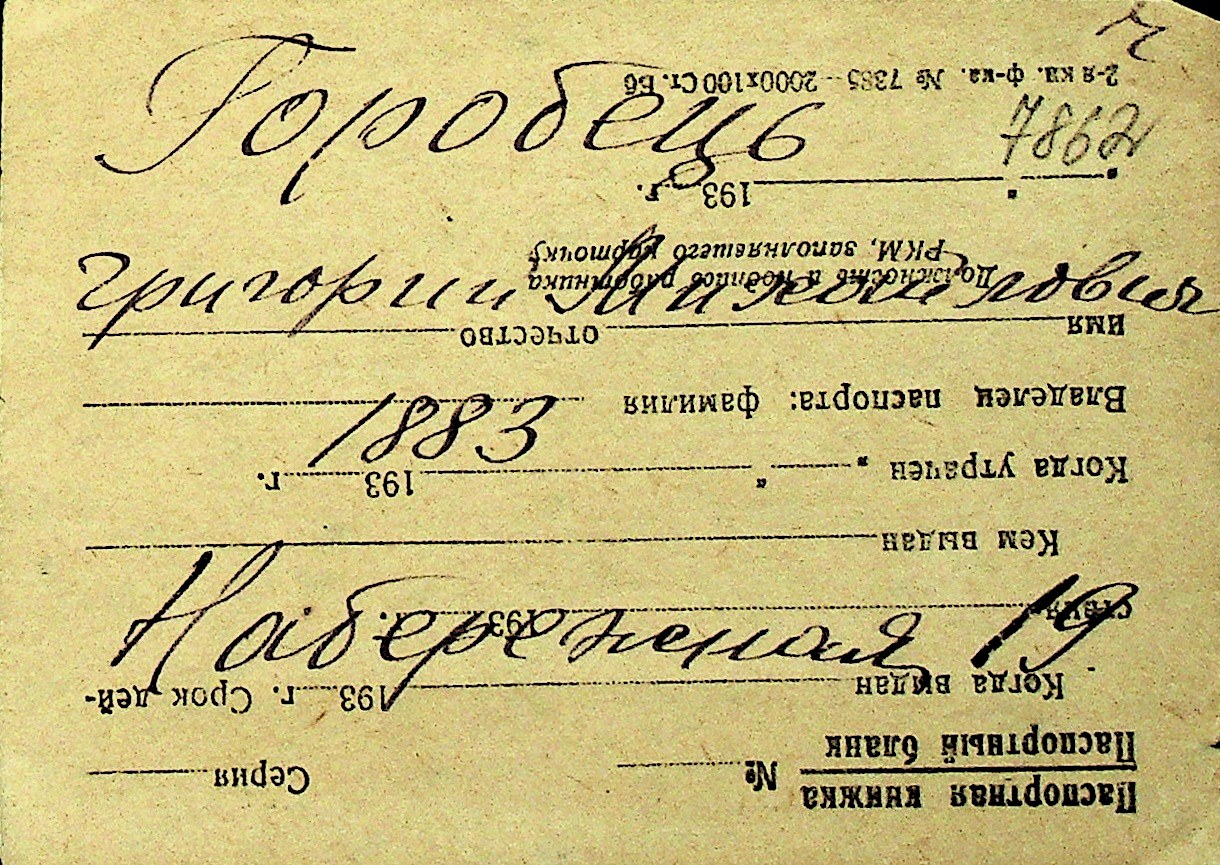 ч
Горобець
7862
Григорий Михайлович
1883
Набережная 19
Паспортная книжка
Паспортный бланк
№ Серия
Когда выдан 193 г. Срок дей-
ствия 193 г.
Кем выдан
Когда утрачен „ “ 193 г.
Владелец паспорта: фамилия
имя отчество
Должность и подпись работника
РКМ, заполнявшего карточку
„ “ 193 г.
2-я кн. ф-ка. № 7385—2000х100 Ст. Б6